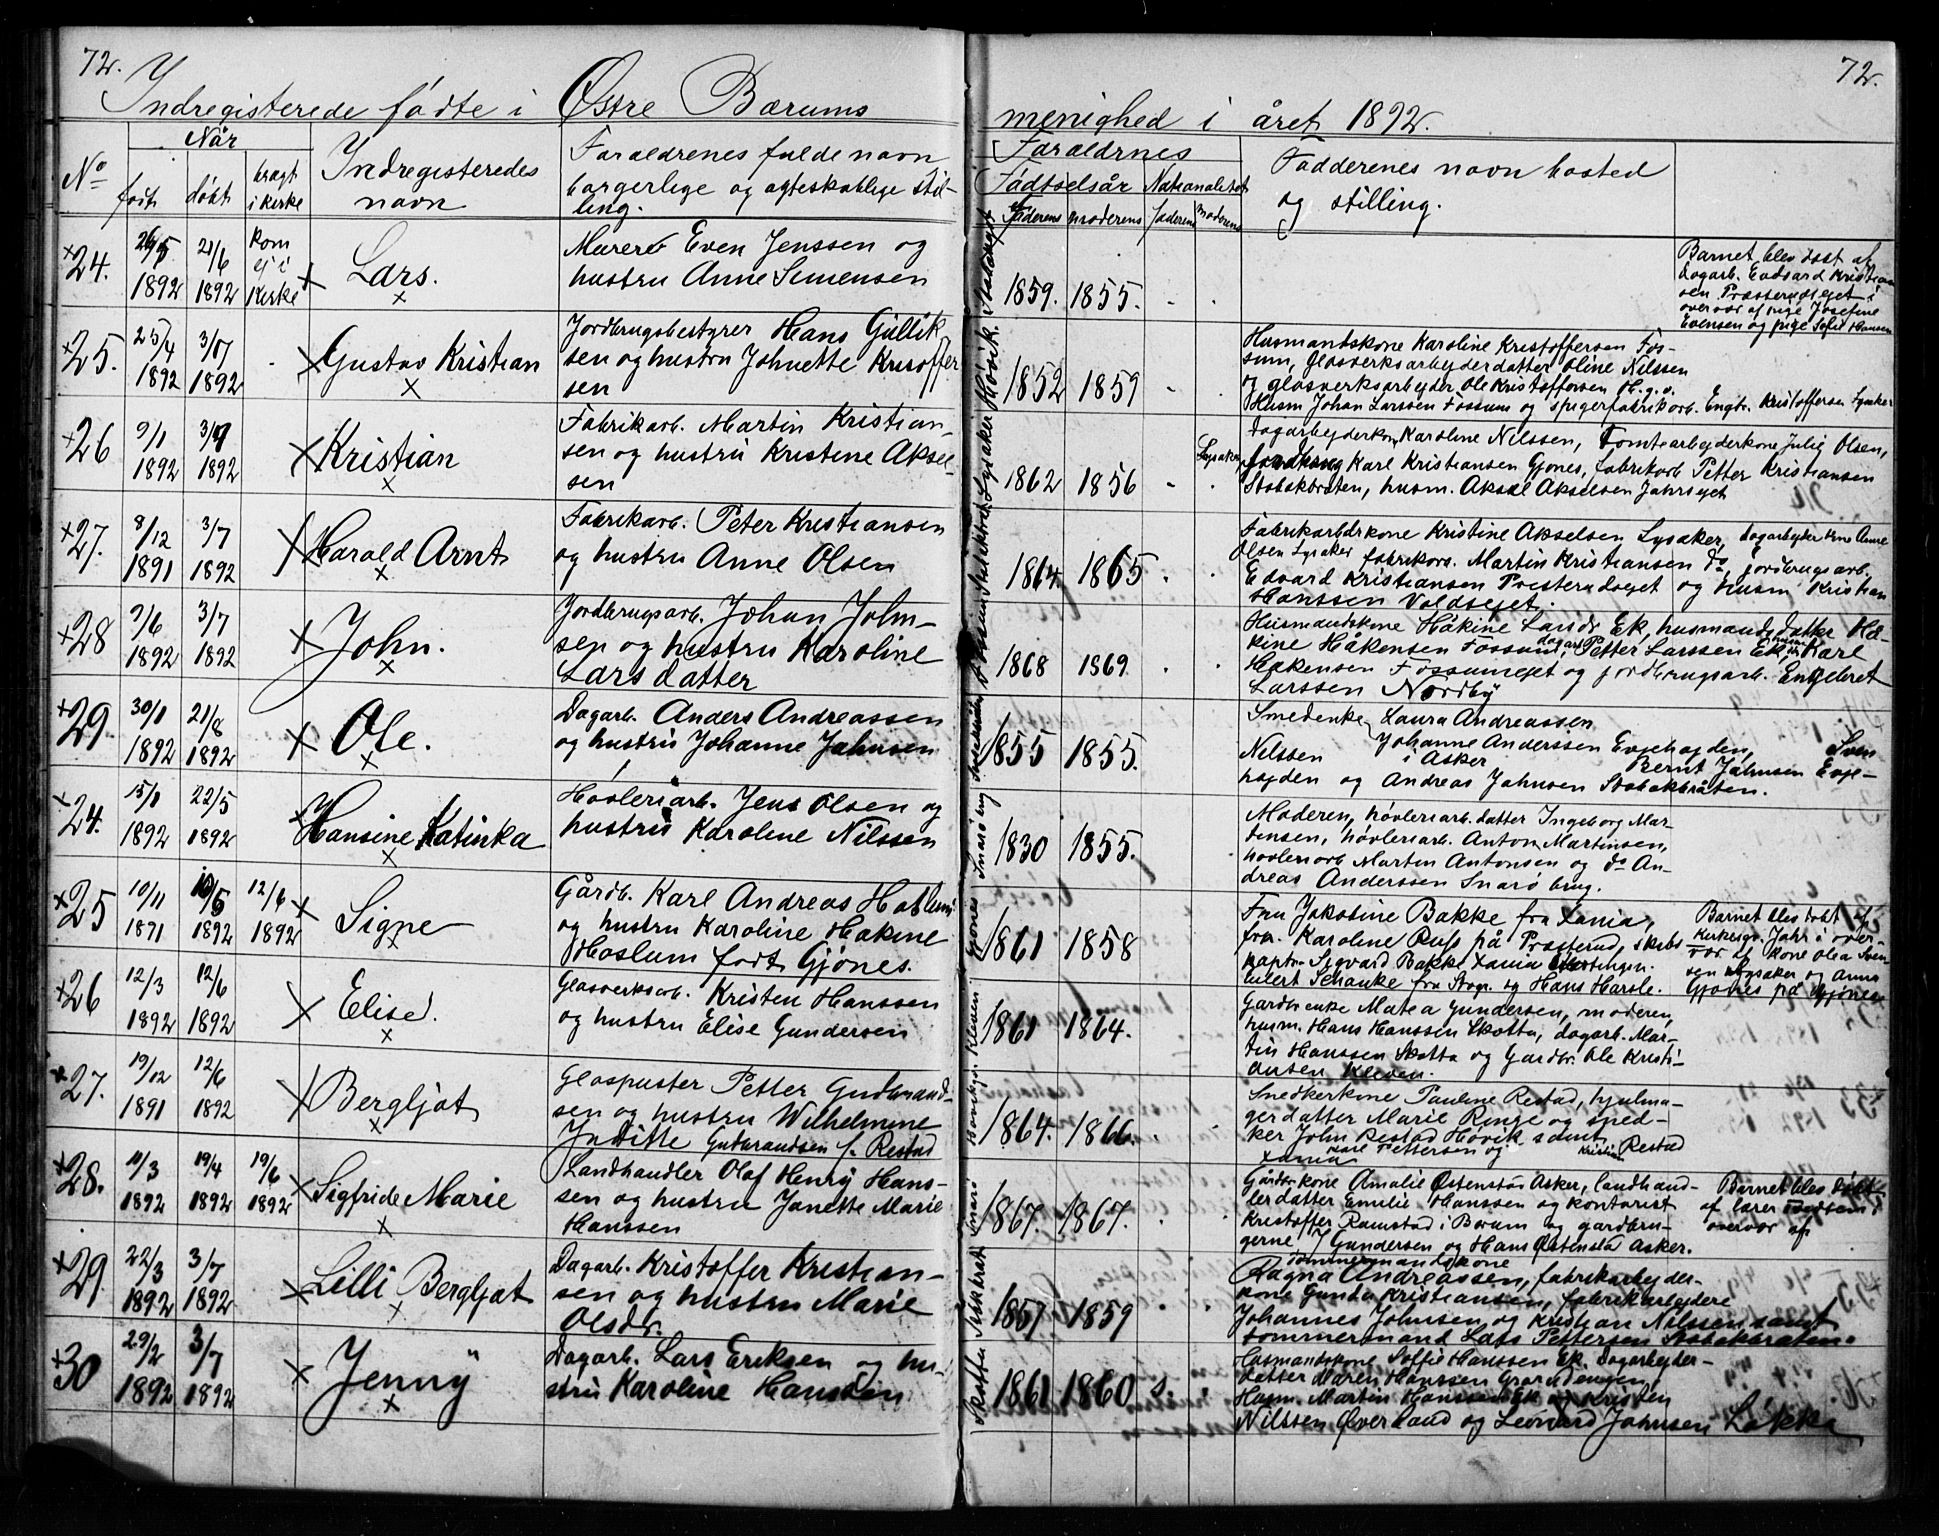 72.
72.
Indregisterede födte i Østre Bærums
menighed i året 1892.
No
Når
født
døbt
bragt
i kirke
Indregisteredes
navn
Foraldrenes fulde navn
borgerlige og ægteskablige stil-
ling.
Foraldrnes
Födtselsår
Nationalitet
Faderens
moderens
faderens
moderens
Fadderenes navn bosted
og stilling.
24.
26/5
1892
21/6
1892
kom
ej i
Kirke
Lars.
Murer Even Jenssen og
hustru Anne Simensen
1859. 1855.
Barnet blev døbt af
dagarb. Edvard Kristian
sen Præsterudejet i
overvær af pige Josefine
Evensen og pige Sofie Hansen
25.
25/4
1892
3/7
1892
Gustav Kristian
Jordbrugsbestyrer Hans Gullik
sen og hustru Johnette Kristoffer
sen
1852 1859
Husmandskone Karoline Kristoffersen Fos-
sum, Glasverksarbejderdatter Oline Nilssen
og glasverksarbejder Ole Kristoffersen H.g.v.
Husm Johan Larssen Fossum og spigerfabrikarb. Engbr. Kristoffersen Lysaker
26
9/1
1892
3/7
1892
Kristian
Fabrikarb. Martin Kristian-
sen og hustru Kristine Aksel-
sen
1862 1856
Dagarbejderkone Karoline Nilssen, Tomtearbejderkone Julie Olsen,
Lysaker
Karl Kristiansen Gjønes, fabrikarb Petter Kristiansen
Stabækbråten, husm. Aksel Akselsen Jahrsejet
27.
8/12
1891
3/7
1892
Harald Arnt
Fabrikarb. Peter Kristiansen
og hustru Anne Olsen
1864. 1865
Fabrikarbdrkone Kristine Akselsen Lysaker, dagarbejderkone Anne
Olsen Lysaker fabrikarb. Martin Kristiansen do, jordbrugsarb.
Edvard Kristiansen Presterudejet og husm Kristian
Hanssen Voldsejet.
28
9/6
1892
3/7
1892
John.
Jordbrugsarb. Johan John-
sen og hustru Karoline
Larsdatter
1868 1869
Husmandskone Håkine Larsdr Ek, husmandsdatter Hå-
kine Håkensen Fossum, dagarb Petter Larssen Ek, husm Karl
Håkensen Fossumejet og jordbrugsarb. Engebret
Larssen Nordby
29.
30/1
1892
21/8
1892
Ole.
Dagarb. Anders Andreassen
og hustru Johanne Jahnsen
1855 1855.
Smedenke Laura Andreassen
Johanne Anderssen Evjehøjden, Sven
Nilssen i Asker Bernt Jahnsen Evje-
højden og Andreas Jahnsen Stabækbråten.
24.
15/1
1892
22/5
1892
Hansine Katinka
Høvleriarb. Jens Olsen og
hustru Karoline Nilssen
1830 1855.
Moderen, høvleriarb. datter Ingeborg Mar-
tensen, høvleriarb. Anton Martinsen,
høvleriarb Martin Antonsen og do An-
dreas Anderssen Snarø brug.
25
10/11
1871
10/5
1892
12/6
1892
Signe
Gårdb. Karl Andreas Haslum
og hustru Karoline Hakine
Haslum født Gjønes.
1861 1858
Fru Jakobine Bakke fra Xania,
frø. Karoline Russ på Præsterud, skibs
kaptn Sigvard Bakke Xania
Schanke fra Stop. og Hans Harsle.
Barnet blev døbt af
Kirkesgr. Jahr i over-
vær af kone Olea Sven
sen Lysaker og Anna
Gjønes på Gjønes
26
12/3
1892
12/6
1892
Elise.
Glasverksarb. Kristen Hanssen
og hustru Elise Gundersen
1861 1864.
Gårdbr enke Matea Gundersen, moderen,
husm. Hans Hanssen Skotta, dagarb. Mar-
tin Hanssen Skotta og Gardbr. Ole Kristi-
ansen Kleven.
27.
19/12
1891
12/6
1892
Bergljot
Glaspuster Petter Gudbrand-
sen og hustru Wilhelmine
Inditte Gudbrandsen f. Restad
1864. 1866.
Snedkerkone Pauline Restad, hjulma-
gerdatter Marie Ringe og sned-
ker John Restad Høvik samt
Xania Karl Pettersen og Kristian Restad
28.
11/3
1892
19/4
1892
19/6
1892
Sigfride Marie
Landhandler Olaf Henry Hans-
sen og hustru Janette Marie
Hanssen
1867. 1867.
Gårdbr kone Amalie Østenstad Asker, landhand-
lerdatter Emilie Hanssen og kontorist
Kristoffer Ramstad i Bærum og gardbru-
gerne Gundersen og Hans Østenstad Asker.
Barnet blev døbt
af lærer i
overvær af
29.
22/3
1892
3/7
1892
Lilli Bergljot
Dagarb. Kristoffer Kristian-
sen og hustru Marie
Olsdr.
1867. 1859
Tømmermandskone
Ragna Andreassen, fabrikarbejder-
kone Gunda Kristiansen, fabrikarbejdere
Johannes Johnsen og Kristian Nilssen samt
tømmermand Lars Pettersen Stabækbråten.
30
29/2
1892
3/7
1892
Jenny
Dagarb. Lars Eriksen og hu-
stru Karoline Hanssen
1861 1860
Husmandskone Soffie Hanssen Ek. Dagarbejder-
datter Maren Hanssen Grændengen,
Husm. Martin Hanssen Ek og Kristen
Nilssen Øverland og Leonard Jahnsen Løkke